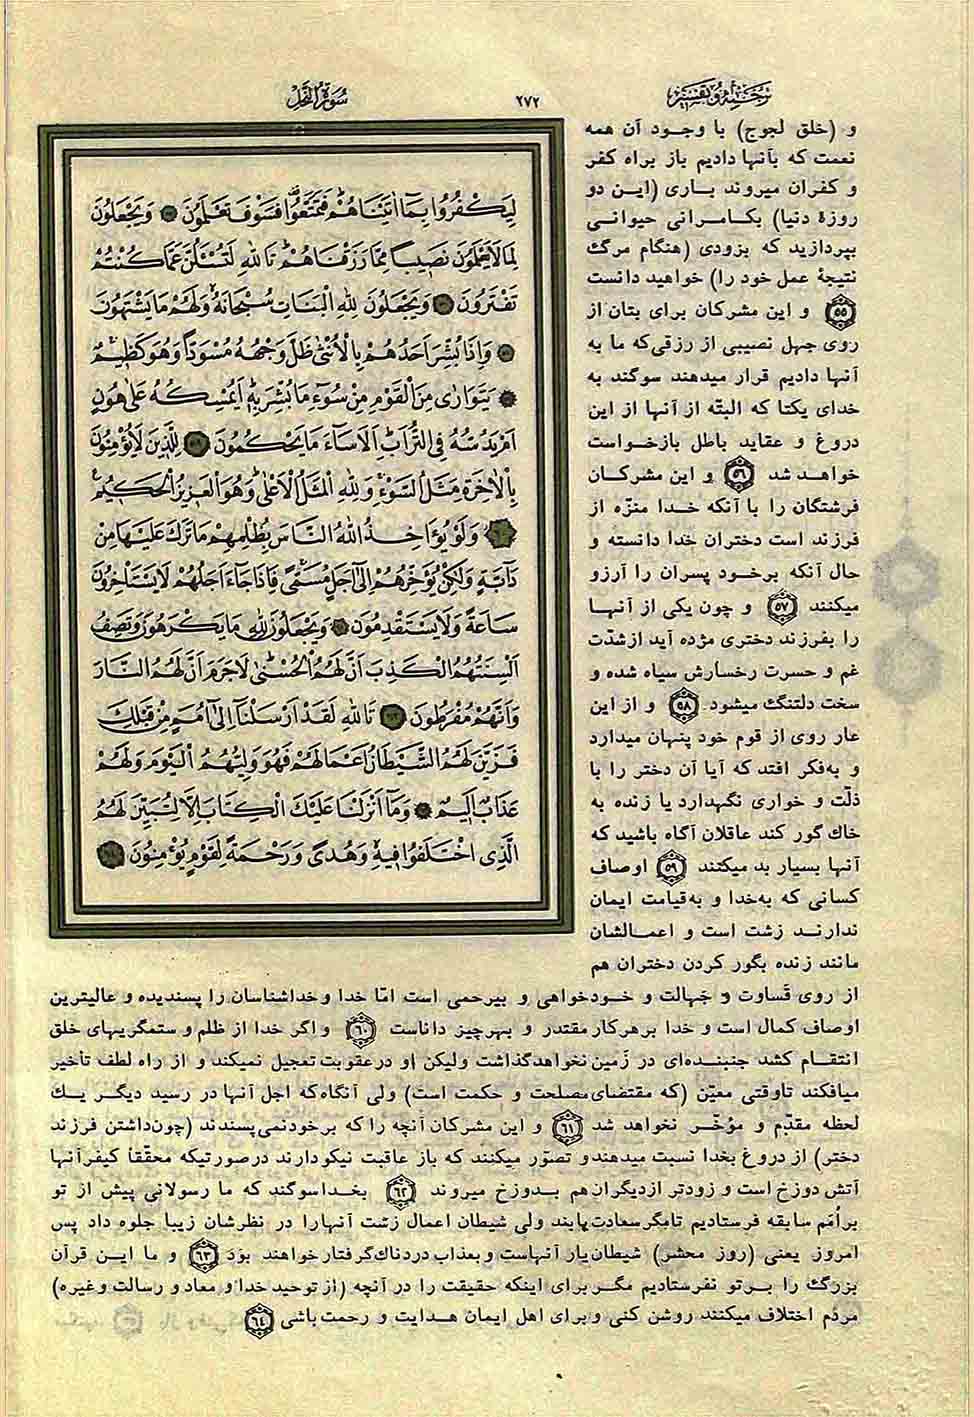 ترجمه و تفسیر
۲۷۲
سورة النحل
و (خلق لجوج) با وجود آن همه
نعمت که بآنها دادیم باز براه کفر
و کفران میروند باری (این دو
روزهٔ دنیا) بکامرانی حیوانی
بپردازید که بزودی (هنگام مرگ
نتیجهٔ عمل خود را) خواهید دانست
۵۵ و این مشرکان برای بتان از
روی جهل نصیبی از رزقی‌که ما به
آنها دادیم قرار میدهند سوگند به
خدای یکتا که البتّه از آنها از این
دروغ و عقاید باطل بازخواست
خواهد شد ۵۶ و این مشرکان
فرشتگان را با آنکه خدا منزّه از
فرزند است دختران خدا دانسته و
حال آنکه برخود پسران را آرزو
میکنند ۵۷ و چون یکی از آنها
را بفرزند دختری مژده آید ازشدّت
غم و حسرت رخسارش سیاه شده و
سخت دلتنگ میشود ۵۸ و از این
عار روی از قوم خود پنهان میدارد
و به‌فکر افتد که آیا آن دختر را با
ذلّت و خواری نگهدارد یا زنده به
خاك گور کند عاقلان آگاه باشید که
آنها بسیار بد میکنند ۵۹ اوصاف
کسانی که به‌خدا و به‌قیامت ایمان
ندارند زشت است و اعمالشان
مانند زنده بگور کردن دختران هم
لِيَكْفُرُوا بِمَا اٰتَيْنَاهُمْ فَتَمَتَّعُوا فَسَوْفَ تَعْلَمُونَ وَيَجْعَلُونَ
لِمَا لَا يَعْلَمُونَ نَصِيبًا مِمَّا رَزَقْنَاهُمْ تَاللهِ لَتُسْئَلُنَّ عَمَّا كُنْتُمْ
تَفْتَرُونَ وَيَجْعَلُونَ لِلهِ الْبَنَاتِ سُبْحَانَهُ وَلَهُمْ مَا يَشْتَهُونَ
وَاِذَا بُشِّرَ اَحَدُهُمْ بِالْاُنْثٰى ظَلَّ وَجْهُهُ مُسْوَدًّا وَهُوَ كَظِيمٌ
يَتَوَارٰى مِنَ الْقَوْمِ مِنْ سُوٓءِ مَا بُشِّرَ بِهِ اَيُمْسِكُهُ عَلٰى هُونٍ
اَمْ يَدُسُّهُ فِي التُّرَابِ اَلَا سَآءَ مَا يَحْكُمُونَ ۵۹ لِلَّذِينَ لَا يُؤْمِنُونَ
بِالْاٰخِرَةِ مَثَلُ السَّوْءِ وَلِلهِ الْمَثَلُ الْاَعْلٰى وَهُوَ الْعَزِيزُ الْحَكِيمُ
وَلَوْ يُؤَاخِذُ اللهُ النَّاسَ بِظُلْمِهِمْ مَا تَرَكَ عَلَيْهَا مِنْ
دَآبَّةٍ وَلٰكِنْ يُؤَخِّرُهُمْ اِلٰٓى اَجَلٍ مُسَمًّى فَاِذَا جَآءَ اَجَلُهُمْ لَا يَسْتَاْخِرُونَ
سَاعَةً وَلَا يَسْتَقْدِمُونَ وَيَجْعَلُونَ لِلهِ مَا يَكْرَهُونَ وَتَصِفُ
اَلْسِنَتُهُمُ الْكَذِبَ اَنَّ لَهُمُ الْحُسْنٰى لَا جَرَمَ اَنَّ لَهُمُ النَّارَ
وَاَنَّهُمْ مُفْرَطُونَ تَاللهِ لَقَدْ اَرْسَلْنَآ اِلٰٓى اُمَمٍ مِنْ قَبْلِكَ
فَزَيَّنَ لَهُمُ الشَّيْطَانُ اَعْمَالَهُمْ فَهُوَ وَلِيُّهُمُ الْيَوْمَ وَلَهُمْ
عَذَابٌ اَلِيمٌ وَمَآ اَنْزَلْنَا عَلَيْكَ الْكِتَابَ اِلَّا لِتُبَيِّنَ لَهُمُ
الَّذِي اخْتَلَفُوا فِيهِ وَهُدًى وَرَحْمَةً لِقَوْمٍ يُؤْمِنُونَ
از روی قساوت و جهالت و خودخواهی و بیرحمی است امّا خدا و خداشناسان را پسندیده و عالیترین
اوصاف کمال است و خدا برهرکار مقتدر و بهرچیز داناست ۶۰ و اگر خدا از ظلم و ستمگریهای خلق
انتقام کشد جنبنده‌ای در زمین نخواهد گذاشت ولیکن او درعقوبت تعجیل نمیکند و از راه لطف تأخیر
میافکند تاوقتی معیّن (که مقتضای مصلحت و حکمت است) ولی آنگاه که اجل آنها در رسید دیگر یك
لحظه مقدّم و مؤخّر نخواهد شد ۶۱ و این مشرکان آنچه را که برخودنمی‌پسندند (چون‌داشتن فرزند
دختر) از دروغ بخدا نسبت میدهند و تصوّر میکنند که باز عاقبت نیکو دارند درصورتیکه محقّقاً کیفر آنها
آتش دوزخ است و زودتر ازدیگران هم بدوزخ میروند ۶۲ بخدا سوگند که ما رسولانی پیش از تو
براُمَم سابقه فرستادیم تامگر سعادت یابند ولی شیطان اعمال زشت آنها را در نظرشان زیبا جلوه داد پس
امروز یعنی (روز محشر) شیطان یار آنهاست و بعذاب دردناك گرفتار خواهند بود ۶۳ و ما این قرآن
بزرگ را برتو نفرستادیم مگر برای اینکه حقیقت را در آنچه (از توحید خدا و معاد و رسالت و غیره)
مردم اختلاف میکنند روشن کنی و برای اهل ایمان هدایت و رحمت باشی ۶۴